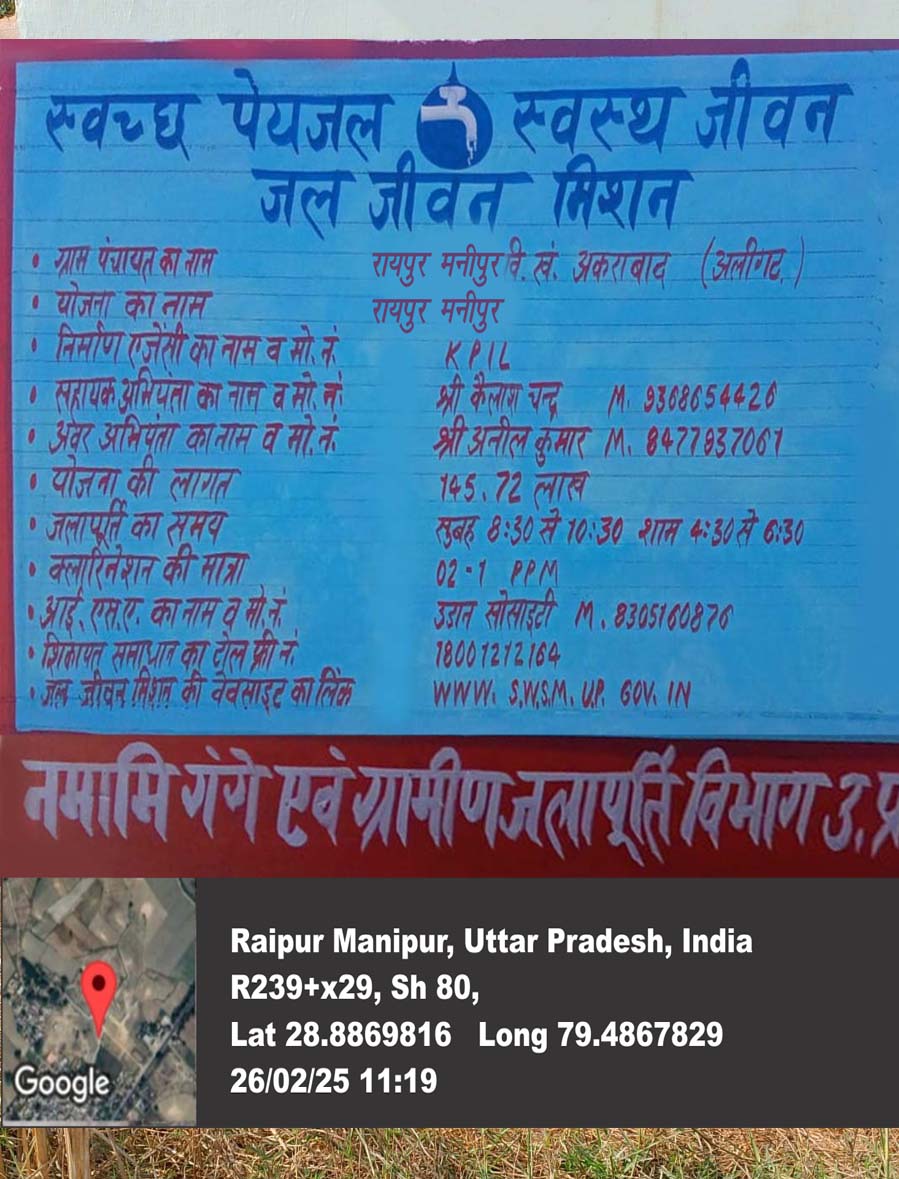 स्वच्छ पेयजल स्वस्थ जीवन
जल जीवन मिशन
• ग्राम पंचायत का नाम रायपुर मनीपुर वि. खं. अकराबाद (अलीगढ़.)
• योजना का नाम रायपुर मनीपुर
• निर्माण एजेंसी का नाम व मो. नं. KPIL
• सहायक अभियंता का नाम व मो. नं. श्री कैलाश चन्द्र M. 9368654426
• अवर अभियंता का नाम व मो. नं. श्री अनील कुमार M. 8477937061
• योजना की लागत 145.72 लाख
• जलापूर्ति का समय सुबह 8:30 से 10:30 शाम 4:30 से 6:30
• क्लारिनेशन की मात्रा 02-1 PPM
• आई. एस. ए. का नाम व मो. नं. उडान सोसाइटी M. 8305160876
• शिकायत समाधान का टोल फ्री नं. 18001212164
• जल जीवन मिशन की वेबसाइट का लिंक WWW. S.W.S.M. U.P. GOV. IN
नमामि गंगे एवं ग्रामीण जलापूर्ति विभाग उ. प्र
Raipur Manipur, Uttar Pradesh, India
R239+x29, Sh 80,
Lat 28.8869816 Long 79.4867829
26/02/25 11:19
Google